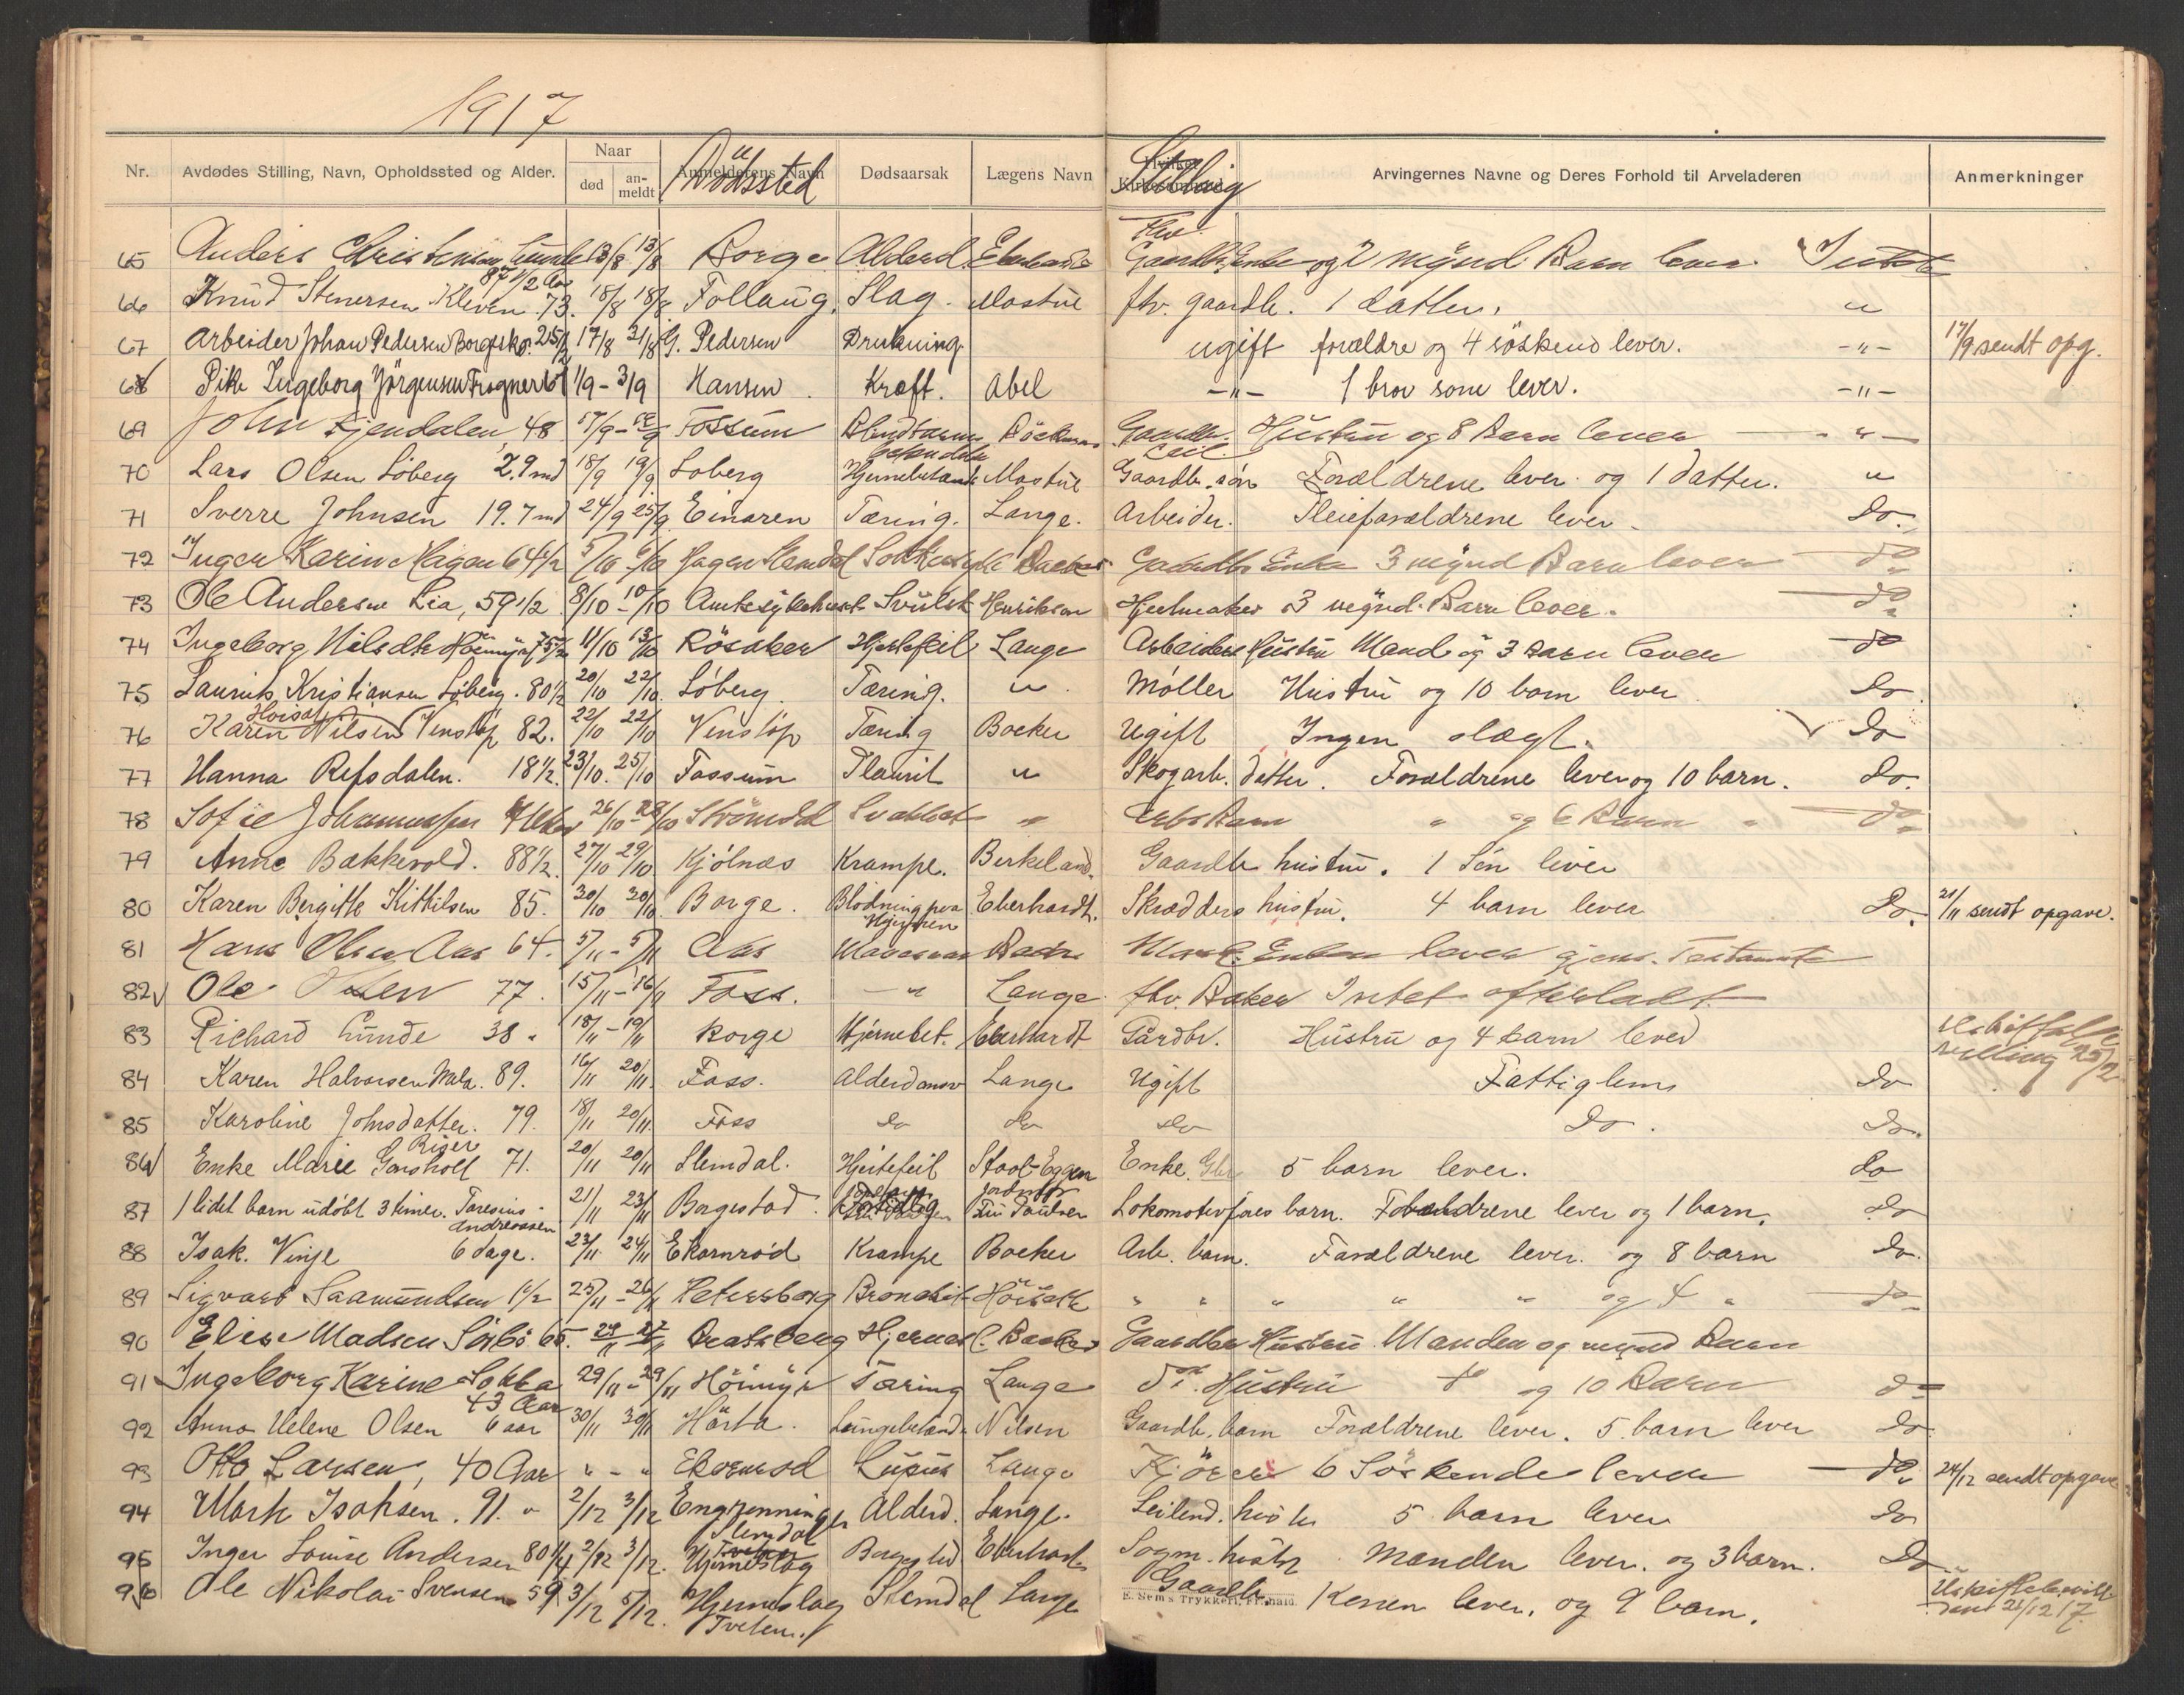 1917
Nr. Avdødes Stilling, Navn, Opholdssted og Alder. Naar død an-meldt Anmelderens Navn Dödssted Dødsaarsak Lægens Navn Stilling Arvingernes Navne og Deres Forhold til Arveladeren Anmerkninger
65 Anders Christensen Lunde 87 1/2 Aar 13/8 13/8 Borge Alderd. Eberhardt Fhv. Gaardbr. Enke og 2 mynd Barn lever Intet
66 Knud Stenersen Kleven 73. 18/8 18/8 Follaug. Slag. Mostue fhv. gaardb. 1 datter. "
67 Arbeider Johan Pedersen Borgeskg. 25 1/2 17/8 31/8 G. Pedersen Drukning. ugift forældre og 4 söskend lever. -"- 17/9 sendt opg.
68 Pike Ingeborg Jörgensen Frogner 67 1/9 - 3/9 Hansen Kræft. Abel -"- 1 bror som lever. -"-
69 John Fjendalen, 48 17/9 - Fossum Blindtarms Gaardbr. Hustru og 8 Barn lever - " -
70 Lars Olsen Löberg 2.9 md 18/9 19/9 Löberg Hjernebetænd. Mostue Gaardb. sön Forældrene lever og 1 datter. "
71 Sverre Johnsen 19.7 md 24/9 25/9 Einaren Tæring. Lange. Arbeider. Pleieforældrene lever. do.
72 Inger Karin Hagen 64 1/2 5/10 6/10 Hagen Slemdal Backer Gaardbr Enke 3 mynd Barn lever do
73 Ole Andersen Lia, 59 1/2 8/10 - 10/10 Amtssykehuset Svulst Henriksen Hjulmaker 3 mynd. Barn lever. do
74 Ingeborg Nilsdtr Höimyr 75 1/2 11/10 13/10 Rösaker Hjertefeil Lange Arbeiders Hustru Mand og 3 Barn lever do
75 Laurits Kristiansen Löberg. 80 1/2 20/10 22/10. Löberg. Tæring. " Möller Hustru og 10 barn lever do.
76 Karen Nilsen Venstöp 82. 22/10 22/10 Venstöp Tæring Backer Ugift Ingen slægt. do
77 Hanna Refsdalen. 18 1/2. 23/10. 25/10 Fossum Plaurit " Skogarb. datter. Forældrene lever og 10 barn. do.
78 Sofie 26/10 - 28/10 Strömdal Svakhet " Arb. Barn " og 6 Barn " do
79 Anne Bakkevold. 88 1/2. 27/10 29/10 Kjölnæs Krampe. Berkeland. Gaardb hustru. 1 Sön lever
80 Karen Bergitte Kittilsen 85. 30/10 30/10 Borge. Blödning paa Hjernen Eberhardt. Skrædders hustru. 4 barn lever do. 20/11 sendt opgave.
81 Hans Olsen Aas 64. 5/11 - 5/11 Aas Mavesaar Backer Enken lever gjens. Testamente
82 Ole Olsen 77. 15/11 - 16/11 Foss. - " Lange fhv. Baker Intet efterladt
83 Richard Lunde 38. 18/11 - 19/11 Borge Hjernebet. Eberhardt Gårdbr. Hustru og 4 barn lever 25/2
84 Karen Halvorsen Mæla. 89. 16/11 20/11. Foss. Alderdomsv Lange Ugift Fattiglem do
85 Karoline Johnsdatter. 79. 18/11 20/11. Foss do do do do. do.
86 Enke Marie Riser Gonsholt 71. 20/11 20/11 Slemdal. Hjertefeil Stool-Eggen Enke. Gbr 5 barn lever. do
87 1 lidet barn udöbt 3 timer. Taresius Andreassen 21/11 23/11 Borgestad. For tidlig Jordmor Lokomotivförers barn. Forældrene lever og 1 barn. do
88 Isak. Vinje 6 dage. 23/11 24/11 Ekornröd Krampe Backer Arb. barn. Forældrene lever. og 8 barn do.
89 Sigvard Saamundsen 1 1/2 25/11 - 26/11 Petersborg Bronchit Höiseth " " " " " og 4 " do
90 Elise Madsen Sörbö 65. Bratsberg Hjernesl. Backer Gaardbr Hustru Manden og mynd Barn
91 Ingeborg Karine Sokka 43 Aar 29/11 - 29/11 Höimyr Tæring Lange do. Hustru do og 10 Barn do
92 Anna Helene Olsen 6 aar 30/11 30/11 Hårta. Lungebetænd. Nilsen Gaardb. barn Forældrene lever. 5 barn lever do
93 Otto Larsen, 40 Aar " - " Ekornrød Lupus Lange Kjörer 6 Söskende lever do 24/12 sendt opgave
94 Mark Isaksen. 91. " 2/12 3/12 Engrønninger Slemdal Alderd. Lange. Leilend. hustr 5 barn lever do
95 Inger Louise Andersen 80 1/4 2/12 3/12. Hjerneslag Borgestad Eberhardt Sogm. hustr. Manden lever. og 3 barn. do
96 Ole Nikolai Svensen 59 3/12 5/12. Hjerneslag Tveten. Slemdal Lange Gaardb. Konen lever, og 9 barn. Uskiftebevill. 21/12 17.
E. Sems Trykkeri, Fr.hald.